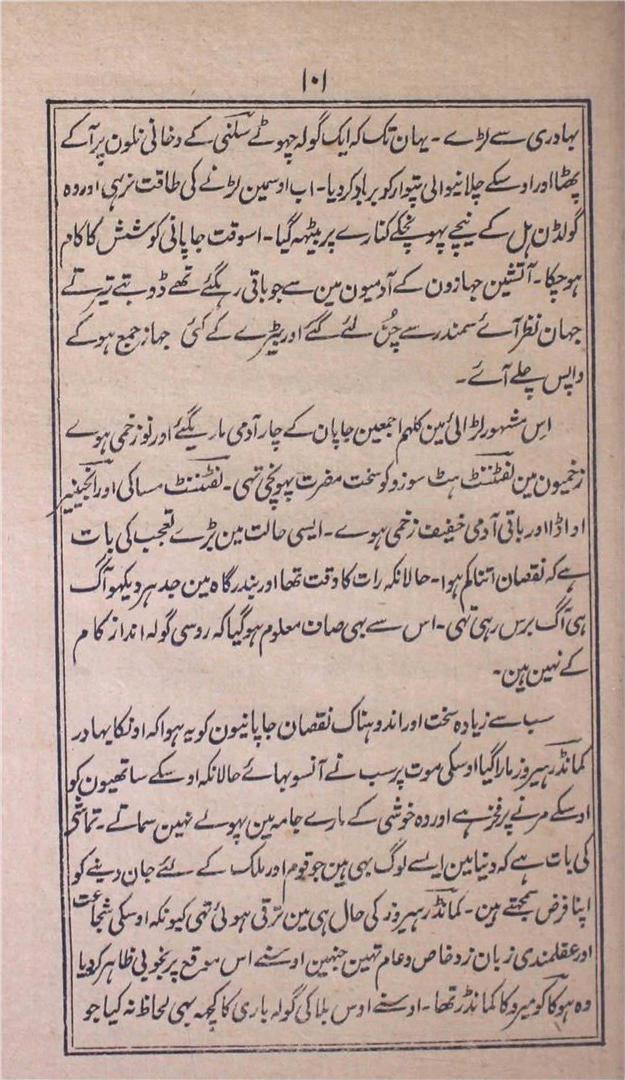 ۱۰۱
بہادری سے لڑے ۔ یہان تک کہ ایک گولہ چھوٹے سلنسی کے دخانی نلون پر آ کے
پھٹا اور اوسکے چلانیوالی پتوار کو برباد کر دیا ۔ اب اوسمین لڑنے کی طاقت نرہی اور وہ
گولڈن ہل کے نیچے پہونچکے کنارے پر بیٹھہ گیا ۔ اسوقت جاپانی کوشش کا کام
ہو چکا ۔ آتشین جہازون کے آدمیون مین سے جو باقی رہگئے تھے ڈوبتے تیرتے
جہان نظر آئے سمندر سے چُن لئے گئے اور بیڑے کے کئی جہاز جمع ہو کے
واپس چلے آئے ۔
اِس مشہور لڑائی مین کلہم اجمعین جاپان کے چار آدمی مارے گئے اور نو زخمی ہوے
زخمیون مین لفٹننٹ ہٹ سوزو کو سخت مضرت پہونچی تہی ۔ لفٹننٹ مساکی اور انجینیر
اواڈا اور باقی آدمی خفیف زخمی ہوے ۔ ایسی حالت مین بڑے تعجب کی بات
ہے کہ نقصان اتنا کم ہوا ۔ حالانکہ رات کا وقت تھا اور بندرگاہ مین جدہر دیکھو آگ
ہی آگ برس رہی تہی ۔ اس سے بہی صاف معلوم ہو گیا کہ روسی گولہ انداز کام
کے نہین ہین ۔
سب سے زیادہ سخت اور اندوہناک نقصان جاپانیون کو یہ ہوا کہ اونکا بہادر
کمانڈر ہیروز مارا گیا اوسکی موت پر سب نے آنسو بہائے حالانکہ اوسکے ساتھیون کو
اوسکے مرنے پر فخر ہے اور وہ خوشی کے مارے جامہ مین پہولے نہین سماتے ۔ تماشے
کی بات ہے کہ دنیا مین ایسے لوگ بہی ہین جو قوم اور ملک کے لئے جان دینے کو
اپنا فرض سمجھتے ہین ۔ کمانڈر ہیروز کی حال ہی مین ترقی ہوئی تہی کیونکہ اوسکی شجاعت
اور عقلمندی زبان زد خاص و عام تہین جنہین اوسنے اس موقع پر بخوبی ظاہر کر دیا
وہ ہوکا کو میرو کا کمانڈر تھا ۔ اوسنے اوس بلا کی گولہ باری کا کچھہ بہی لحاظ نہ کیا جو